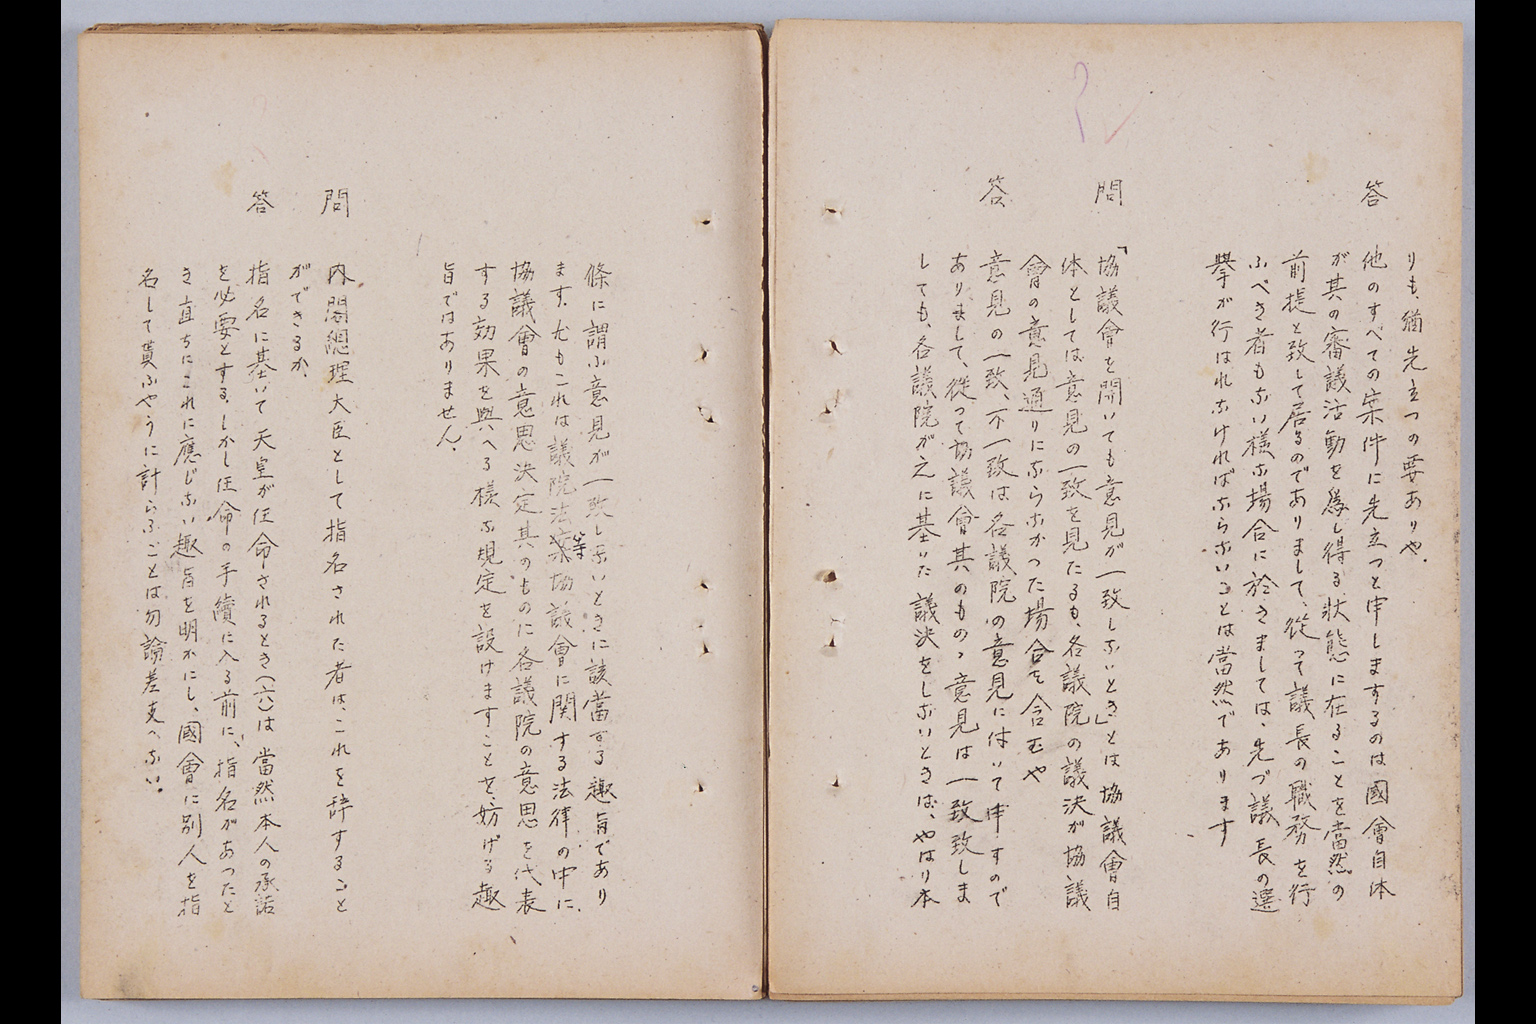 りも、猶先立つの要ありや.
答 他のすべての案件に先立つと申しまするのは國會自体
が其の審議活動を為し得る状態に在ることを當然の
前提と致して居るのでありまして、從って議長の職務を行
ふべき者もない様な場合に於きましては、先づ議長の選
擧が行はれなければならないことは當然であります
問 「協議會を開いても意見が一致しないとき」とは協議會自
体としては意見の一致を見たるも、各議院の議決が協議
會の意見通りにならなかった場合を含むや
答 意見の一致、不一致は各議院の意見において申すので
ありまして、從って協議會其のものの意見は一致致しま
しても、各議院が之に基いた議決をしないときは、やはり本
條に謂ふ意見が一致しないときに該當する趣旨であり
ます.尤もこれは議院法等協議會に関する法律の中に、
協議會の意思決定其のものに各議院の意思を代表
する効果を與へる様な規定を設けますことを、妨げる趣
旨ではありません.
問 内閣總理大臣として指名された者は、これを辞すること
ができるか、
答 指名に基いて天皇が任命されるとき(六)は當然本人の承諾
を必要とする.しかし任命の手續に入る前に、指名があったと
き直ちにこれに應じない趣旨を明かにし、國會に別人を指
名して貰ふやうに計らふことは勿論差支へない.